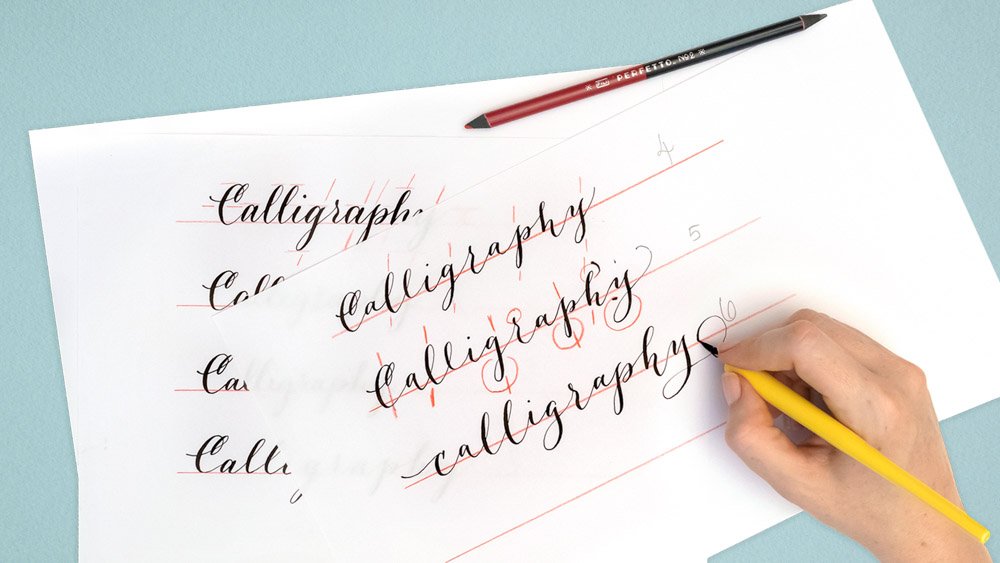 PERFETTO. No2
Calligraphy
4
Calligraphy
5
Calligraphy
6
calligraphy